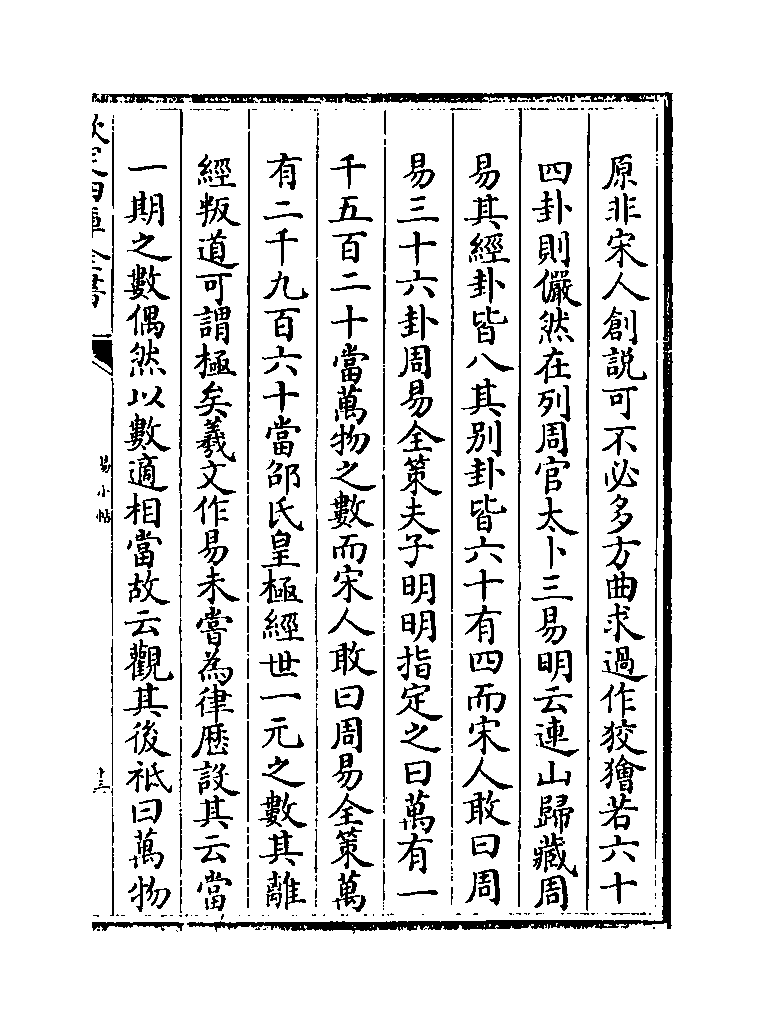 原非宋人創説可不必多方曲求過作狡獪若六十
四卦則儼然在列周官太卜三易明云連山歸藏周
易其經卦皆八其别卦皆六十有四而宋人敢曰周
易三十六卦周易全策夫子明明指定之曰萬有一
千五百二十當萬物之數而宋人敢曰周易全策萬
有二千九百六十當邵氏皇極經世一元之數其離
經叛道可謂極矣羲文作易未嘗為律厯設其云當
一期之數偶然以數適相當故云觀其後祗曰萬物
欽定四庫全書
易小帖
十三